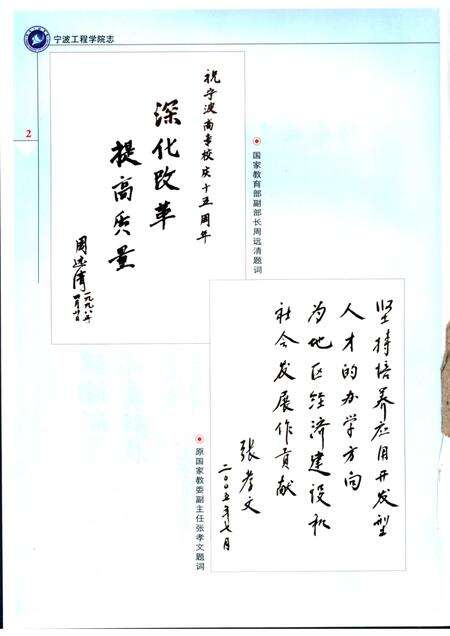 宁波工程学院志
2
祝宁波高专校庆十五周年
深化改革
提高质量
周远清
一九九八年
四月廿日
国家教育部副部长周远清题词
坚持培养应用开发型
人才的办学方向
为地区经济建设和
社会发展作贡献
张孝文
二〇〇五年七月
原国家教委副主任张孝文题词